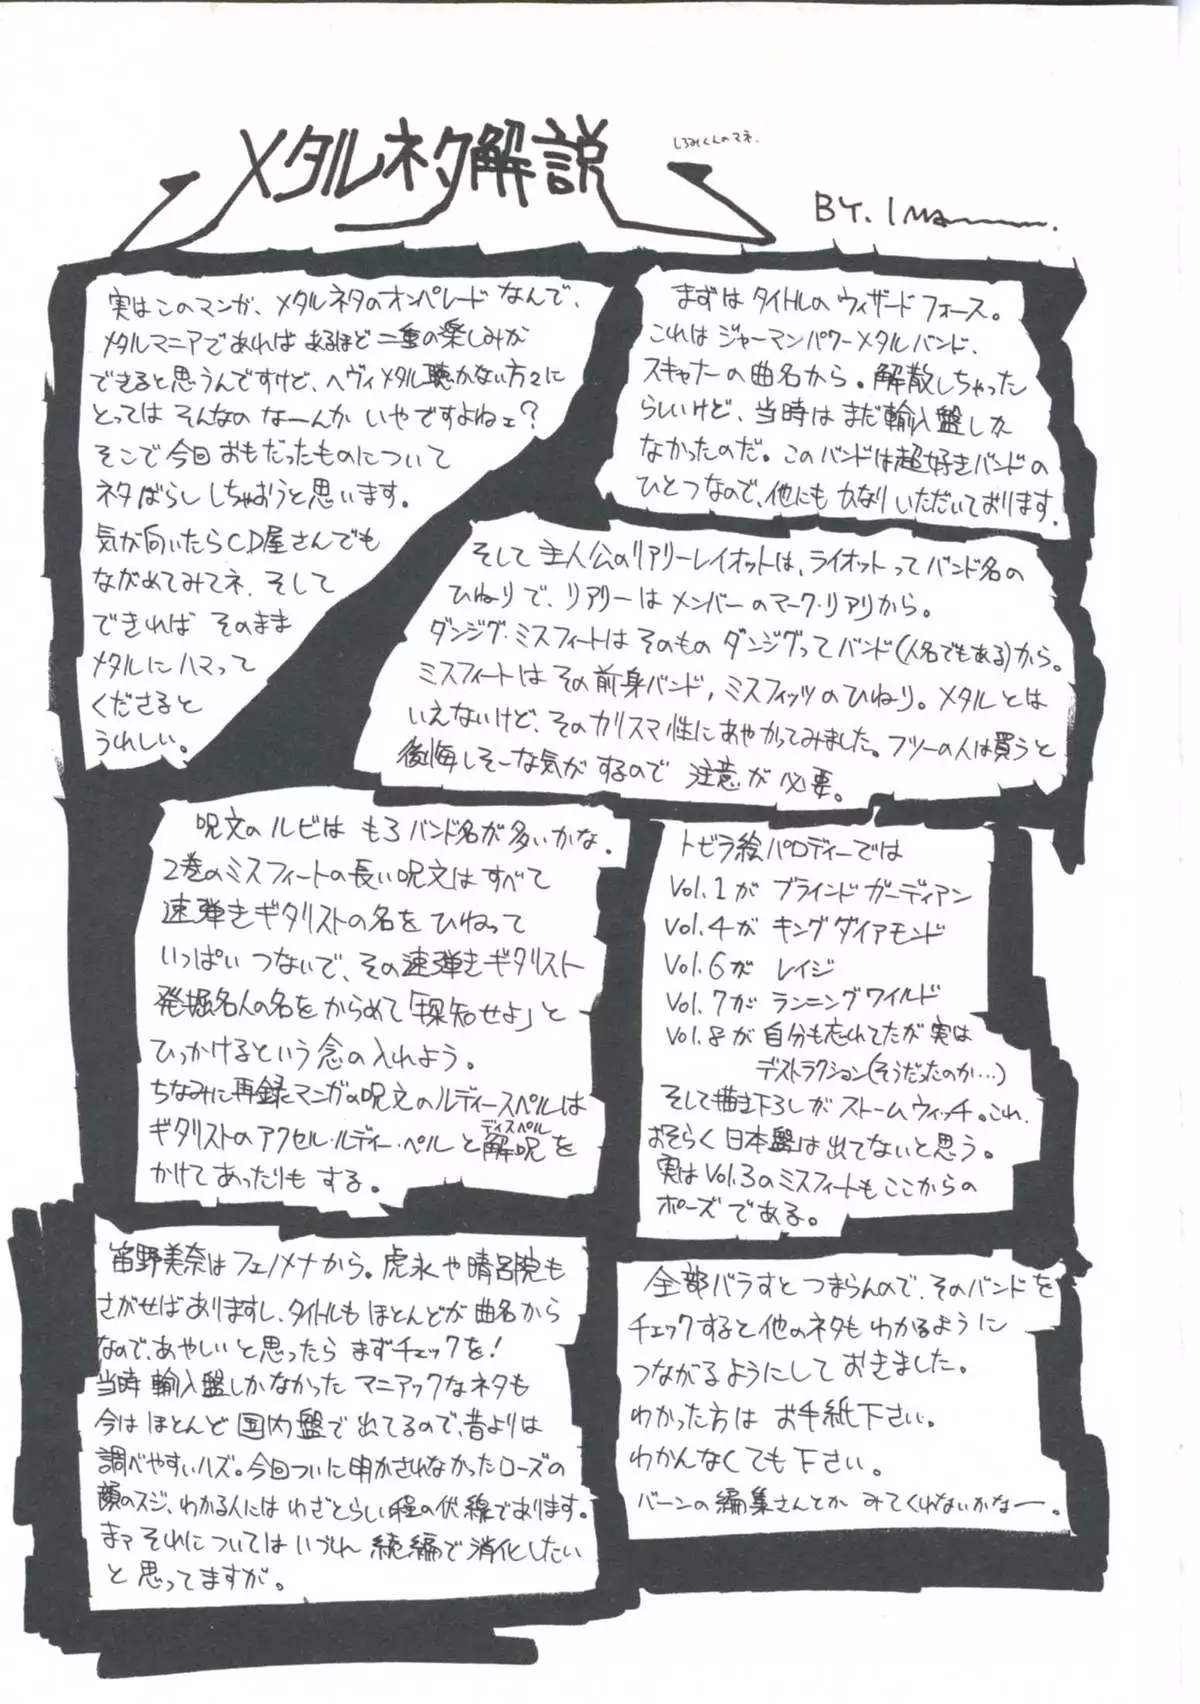 メタルネタ解説
しろみくんのマネ.
BY. I
実はこのマンガ、メタルネタのオンパレードなんで、
メタルマニアであればあるほど二重の楽しみが
できると思うんですけど、ヘヴィメタル聴かない方々に
とってはそんなのなーんかいやですよねェ?
そこで今回おもだったものについて
ネタばらししちゃおうと思います。
気が向いたらCD屋さんでも
ながめてみてネ。そして
できればそのまま
メタルにハマって
くださると
うれしい。
まずはタイトルのウィザードフォース。
これはジャーマンパワーメタルバンド、
スキャナーの曲名から。解散しちゃった
らしいけど、当時はまだ輸入盤しか
なかったのだ。このバンドは超好きバンドの
ひとつなので、他にもかなりいただいております。
そして主人公のリアリーレイオットは、ライオットってバンド名の
ひねりで、リアリーはメンバーのマーク・リアリから。
ダンジグ・ミスフィートはそのものダンジグってバンド(人名でもある)から。
ミスフィートはその前身バンド,ミスフィッツのひねり。メタルとは
いえないけど、そのカリスマ性にあやかってみました。フツーの人は買うと
後悔しそーな気がするので注意が必要。
呪文のルビはもろバンド名が多いかな。
2巻のミスフィートの長い呪文はすべて
速弾きギタリストの名をひねって
いっぱいつないで、その速弾きギタリスト
発掘名人の名をからめて「探知せよ」と
ひっかけるという念の入れよう。
ちなみに再録マンガの呪文のルディースペルは
ギタリストのアクセル・ルディー・ペルと解呪(ディスペル)を
かけてあったりもする。
トビラ絵パロディーでは
Vol.1が ブラインドガーディアン
Vol.4が キングダイアモンド
Vol.6が レイジ
Vol.7が ランニングワイルド
Vol.8が 自分も忘れてたが実は
デストラクション(そうだったのか…)
そして描き下ろしがストームウィッチ。これ、
おそらく日本盤は出てないと思う。
実はVol.3のミスフィートもここからの
ポーズである。
笛野美奈はフェノメナから。虎永や晴呂院も
さがせばありますし、タイトルもほとんどが曲名から
なので、あやしいと思ったらまずチェックを!
当時輸入盤しかなかったマニアックなネタも
今はほとんど国内盤で出てるので、昔よりは
調べやすいハズ。今回ついに明かされなかったローズの
顔のスジ、わかる人にはわざとらしい程の伏線であります。
まァそれについてはいづれ続編で消化したい
と思ってますが。
全部バラすとつまらんので、そのバンドを
チェックすると他のネタもわかるように
つながるようにしておきました。
わかった方はお手紙下さい。
わかんなくても下さい。
バーンの編集さんとかみてくれないかなー。